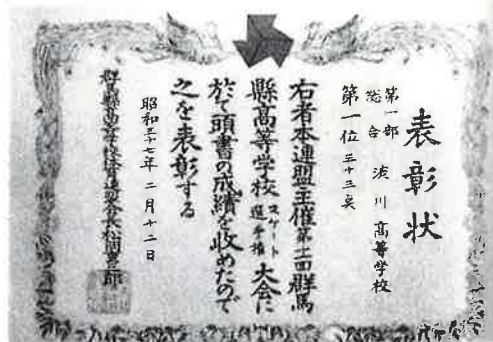 表彰状
第一部
総合 渋川高等学校
第一位 三十三点
右者本連盟主催第十一回群馬
縣高等学校スケート選手権大会に
於て頭書の成績を収めたので
之を表彰する
昭和三十七年二月十二日
群馬縣高等学校体育連盟会長